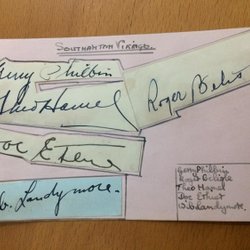 SOUTHAMTON VIKINGS.
Gerry Philbin
Theo Hamel
Roger
Doc
W. Landymore.
Gerry Philbin
Roger
Theo Hamel
Doc
W. Landymore.